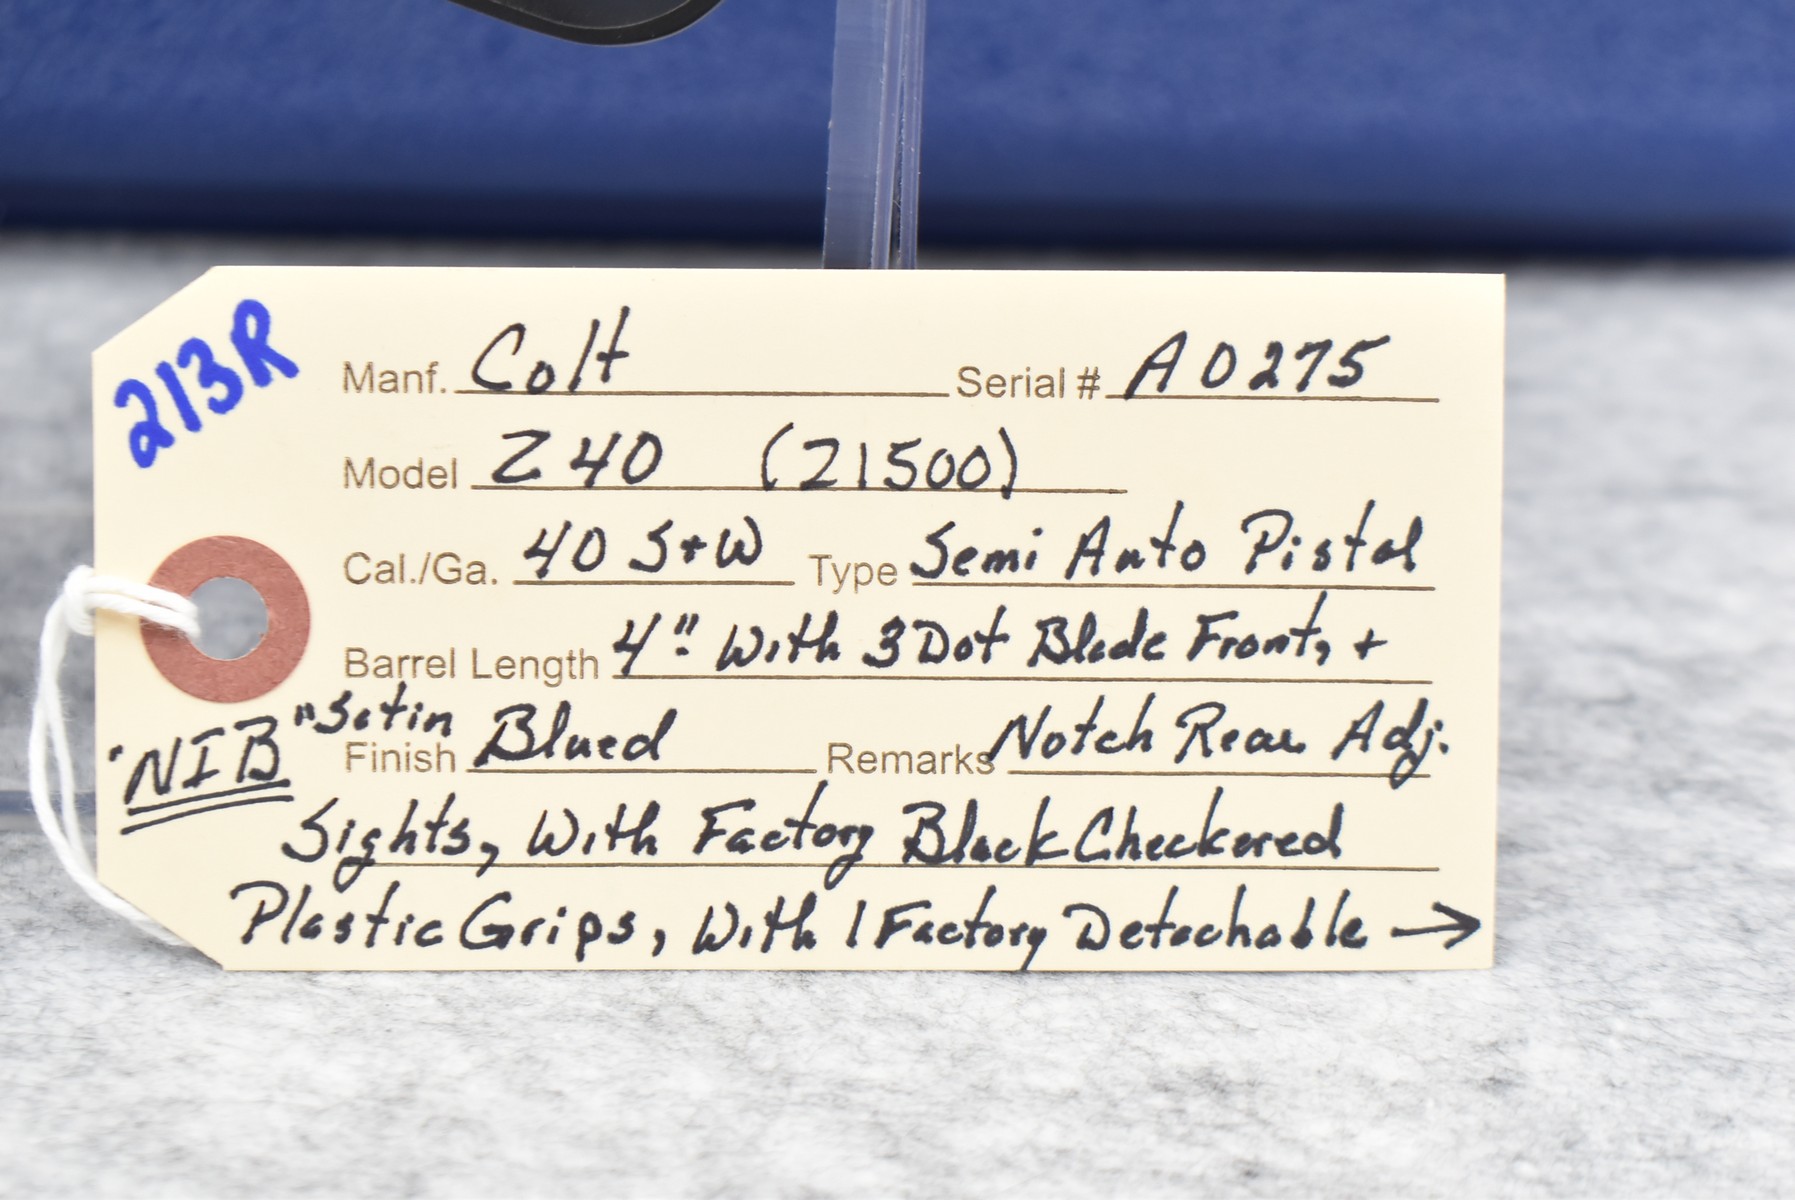 213R
Manf. Colt Serial # A0275
Model Z40 (21500)
Cal./Ga. 40 S+W Type Semi Auto Pistol
Barrel Length 4" With 3 Dot Blade Front, +
"NIB" Satin
Finish Blued Remarks Notch Rear Adj.
Sights, With Factory Black Checkered
Plastic Grips, With 1 Factory Detachable →